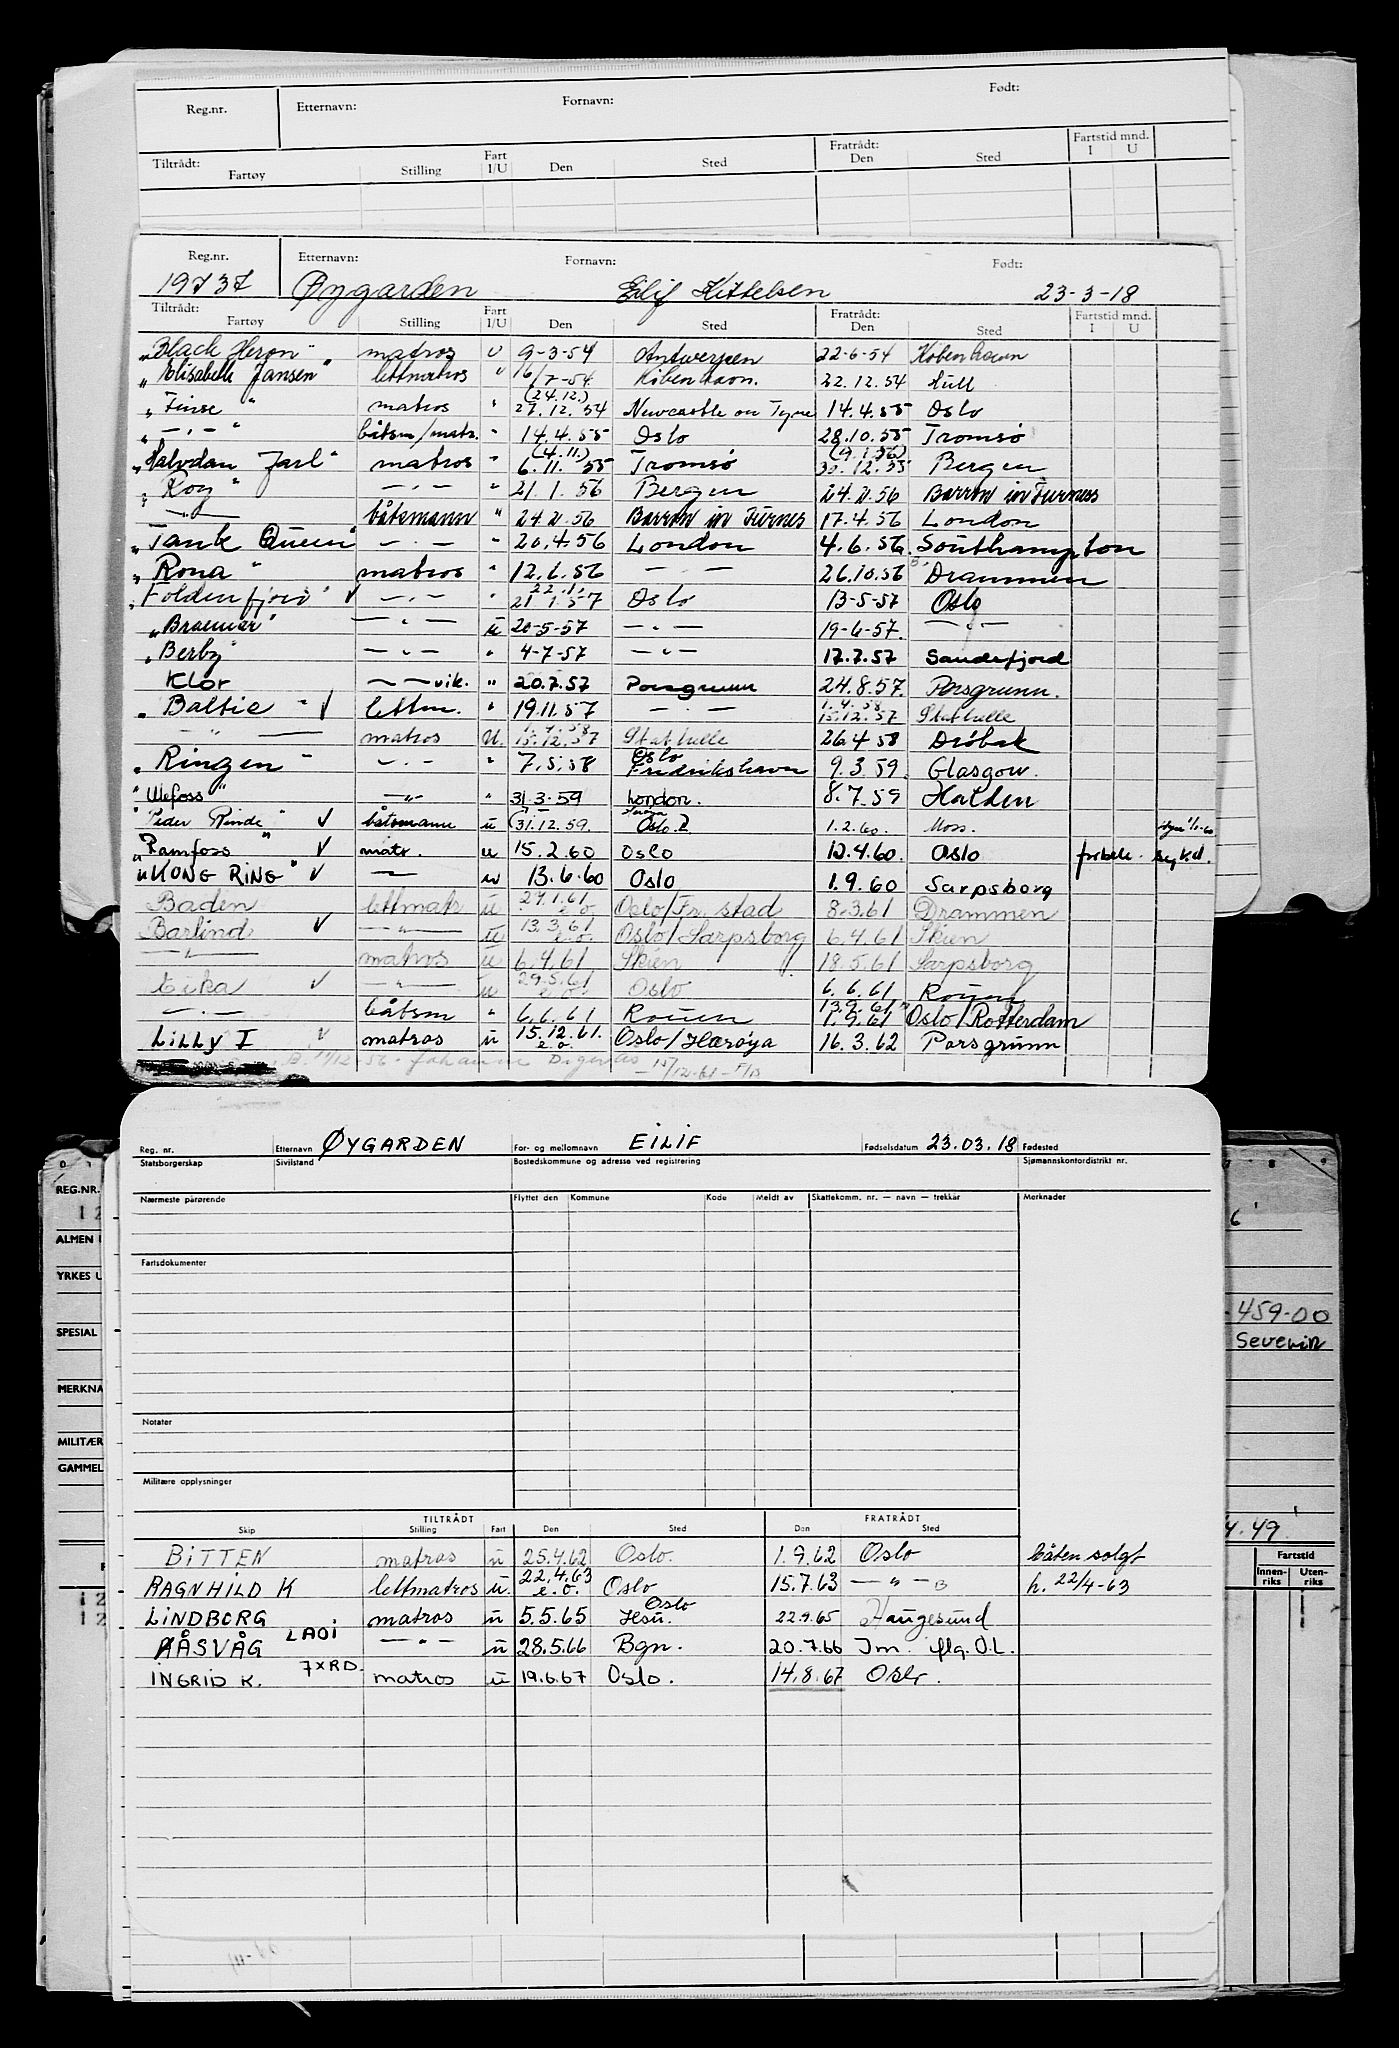 Reg.nr. Etternavn: Fornavn: Født:
Tiltrådt: Fratrådt: Fartstid mnd.
Fartøy Stilling Fart I/U Den Sted Den Sted I U
Reg.nr. Etternavn: Fornavn: Født:
19737 Øygarden Eilif Kittelsen 23-3-18
Tiltrådt: Fratrådt: Fartstid mnd.
Fartøy Stilling Fart I/U Den Sted Den Sted I U
"Black Heron" matros U 9-3-54 Antwerpen 22-6-54 København
"Elisabeth Jansen" lettmatros " 16/7-54 København. 22.12.54 Hull
"Finse" matros " (24.12.) 27.12.54 Newcastle on Tyne 14.4.55 Oslo
" -,- " båtsm/matr. " 14.4.55 Oslo 28.10.55 Tromsø
"Halvdan Jarl" matros " (4.11.) 6.11.55 Tromsø (9.1.56) 30.12.55 Bergen
"Roy" -,- " 21.1.56 Bergen 24.2.56 Barrow in Furness
-"- båtsmann " 24.2.56 Barrow in Furnes 17.4.56 London
"Tank Queen" -.- " 20.4.56 London 4.6.56. Southampton
"Rona" matros " 12.6.56 -"- 26.10.56 Drammen
"Foldenfjord" ✓ -,- " 22.1. 21.1.57 Oslo 13-5-57 Oslo
"Braemar" -"- ü 20-5-57 -"- 19-6-57. -"-
"Berby" -"- " 4-7-57 -"- 17.7.57 Sandefjord
Klor -"- vik. " 20.7.57 Porsgrunn 24.8.57. Porsgrunn.
"Baltic" ✓ lettm. " 19.11.57 -"- 1.4.58 15.12.57 Stathelle
-"- matros U. 1.4.58 15.12.57 Stathelle 26.4.58 Drøbak
"Ringen" -.- " 7.5.58 Oslo Fredrikshavn 9.3.59. Glasgow.
"Ulefoss" -"- " 31.3-59 London. 8.7.59 Halden
"Peder Rinde" ✓ båtsmann ü (31.12.59. Herøya Oslo.) 1.2.60. Moss.
"Ramfoss" ✓ matr. u 15.2.60 Oslo 12.4.60. Oslo
"KONG RING" ✓ -"- u 13.6.60 Oslo 1.9.60 Sarpsborg
Baden lettmatr ü 27.1.61 e.o. Oslo/Fr.stad 8.3.61 Drammen
Barlind ✓ -"- ü 13.3.61 e.o. Oslo/Sarpsborg 6.4.61 Skien
-"- matros ü 6.4.61 Skien 18.5.61 Sarpsborg
Eika ✓ -"- ü 29.5.61 e.o. Oslo 6.6.61 Rouen
-.- båtsm " 6.6.61 Rouen 13.9.61 1.9.61 Oslo/Rotterdam
LILLY I ✓ matros ü 15.12.61. e.o. Oslo/Herøya 16.3.62 Porsgrunn
Reg. nr. Etternavn ØYGARDEN For- og mellomnavn EILIF Fødselsdatum 23.03.18 Fødested
Statsborgerskap Sivilstand Bostedskommune og adresse ved registrering Sjømannskontordistrikt nr.
Nærmeste pårørende Flyttet den Kommune Kode Meldt av Skattekomm. nr. — navn — trekkår Merknader
Fartsdokumenter
Notater
Militære opplysninger
TILTRÅDT FRATRÅDT
Skip Stilling Fart Den Sted Den Sted
BITTEN matros ü 25.4.62 Oslo. 1.9.62 Oslo båten solgt
RAGNHILD K lettmatros ü. 22.4.63 e.o. Oslo 15.7.63 -"- B h. 22/4-63
LINDBORG matros ü 5.5.65 Oslo Hsu. 22.9.65 Haugesund
ÅSVÅG LAOI -"- ü 28.5.66 Bgn. 20.7.66 Im. flg. O.L.
INGRID K. 7XRD. matros ü 19.6.67 Oslo. 14.8.67 Oslo.
REG.NR.
12
ALMEN
YRKES U
SPESIAL
MERKNA
MILITÆR
GAMMEL
12
12
6
-459-00
Severin
4.49
Fartstid
Innenriks Utenriks